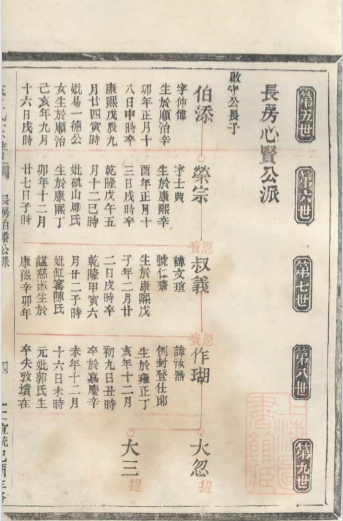 第五世
第六世
第七世
第八世
第九世
長房心賢公派
敢守公長子
伯添
字仲偉
生於順治辛
卯年正月十
八日申時卒
康熙戊辰九
月廿四寅時
妣易一德公
女生於順治
己亥年九月
十六日戌時
榮宗
字士典
生於康熙辛
酉年正月十
三日戌時卒
乾隆戊午五
月十二巳時
妣礪山周氏
生於康熙丁
卯年十二月
廿七日子時
叔義
諱文瑄
號仁齋
生於康熙戊
子年二月廿
二日戌時卒
乾隆甲寅六
月廿二子時
妣缸窰陳氏
諡慈淑生於
康熙辛卯年
作瑚
諱汝器
例封登仕郎
生於雍正丁
亥年十二月
初九日丑時
卒於嘉慶辛
未年十二月
十六日未時
元妣郭氏生
卒失攷墳在
大忽
大三
提
提
長房伯添公派
四